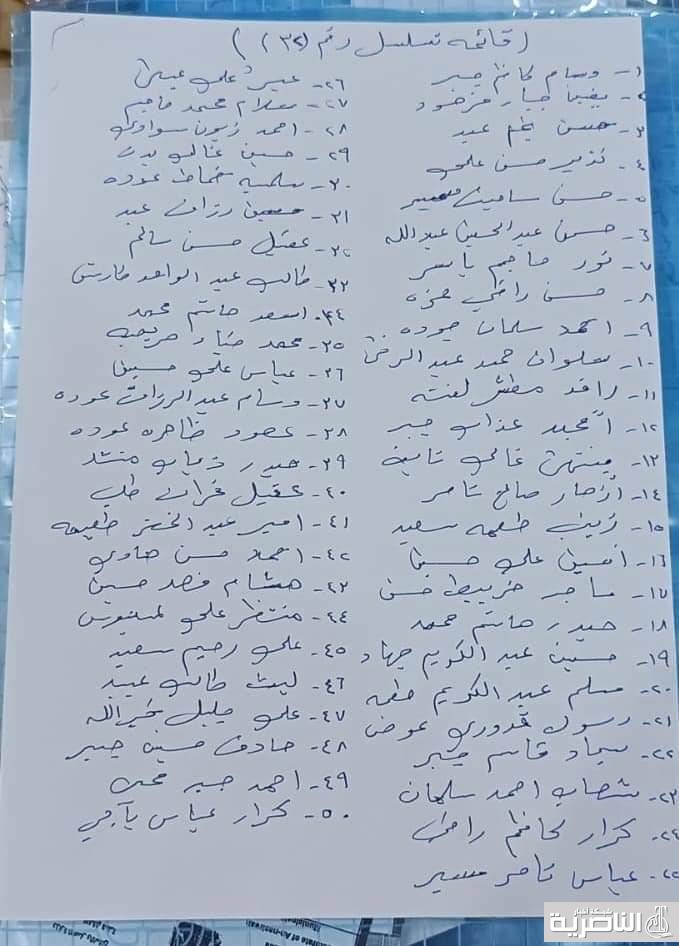 ( قائمة تسلسل رقم (٣٢) )
١- وسام كاظم جبر
٢- يحيى جبار فرهود
٣- حسن نجم عبد
٤- نذير حسن علي
٥- حسن سامي
٦- حسن عبد الحسين عبد الله
٧- نور جاسم ياسر
٨- حسن راضي حمزه
٩- احمد سلمان جوده
١٠- سلوان حميد عبد الرضا
١١- رائد مطشر لفته
١٢- امجد عذاب جبر
١٣- غالي
١٤- ازهار صالح ثامر
١٥- زينب طعمه سعيد
١٦- علي حسين
١٧- ماجد خريبط حسن
١٨- حيدر هاشم محمد
١٩- حسين عبد الكريم جهاد
٢٠- مسلم عبد الكريم طعمه
٢١- رسول قدوري عوض
٢٢- سجاد قاسم جبر
٢٣- شهاب احمد سلمان
٢٤- كرار كاظم راضي
٢٥- عباس ثامر مسير
٢٦- عبير علي عيسى
٢٧- سلام محمد جاسم
٢٨- احمد زبون سوادي
٢٩- حسين غالب بدر
٣٠- سلميه خماط عوده
٣١- حسين رزاق عبد
٣٢- عقيل حسن سالم
٣٣- طالب عبد الواحد طارش
٣٤- اسعد هاشم محمد
٣٥- محمد ضياء
٣٦- عباس علي حسين
٣٧- وسام عبد الرزاق عوده
٣٨- ظاهر عوده
٣٩- حيدر ذياب منشد
٤٠- عقيل
٤١- امير عبد الخضر طعيمه
٤٢- احمد حسن هادي
٤٣- هشام فهد حسين
٤٤- منتظر علي
٤٥- علي رحيم سعيد
٤٦- ليث طالب عبيد
٤٧- علي خير الله
٤٨- صادق حسين جبر
٤٩- احمد جبر
٥٠- كرار عباس
شبكة أخبار
الناصرية